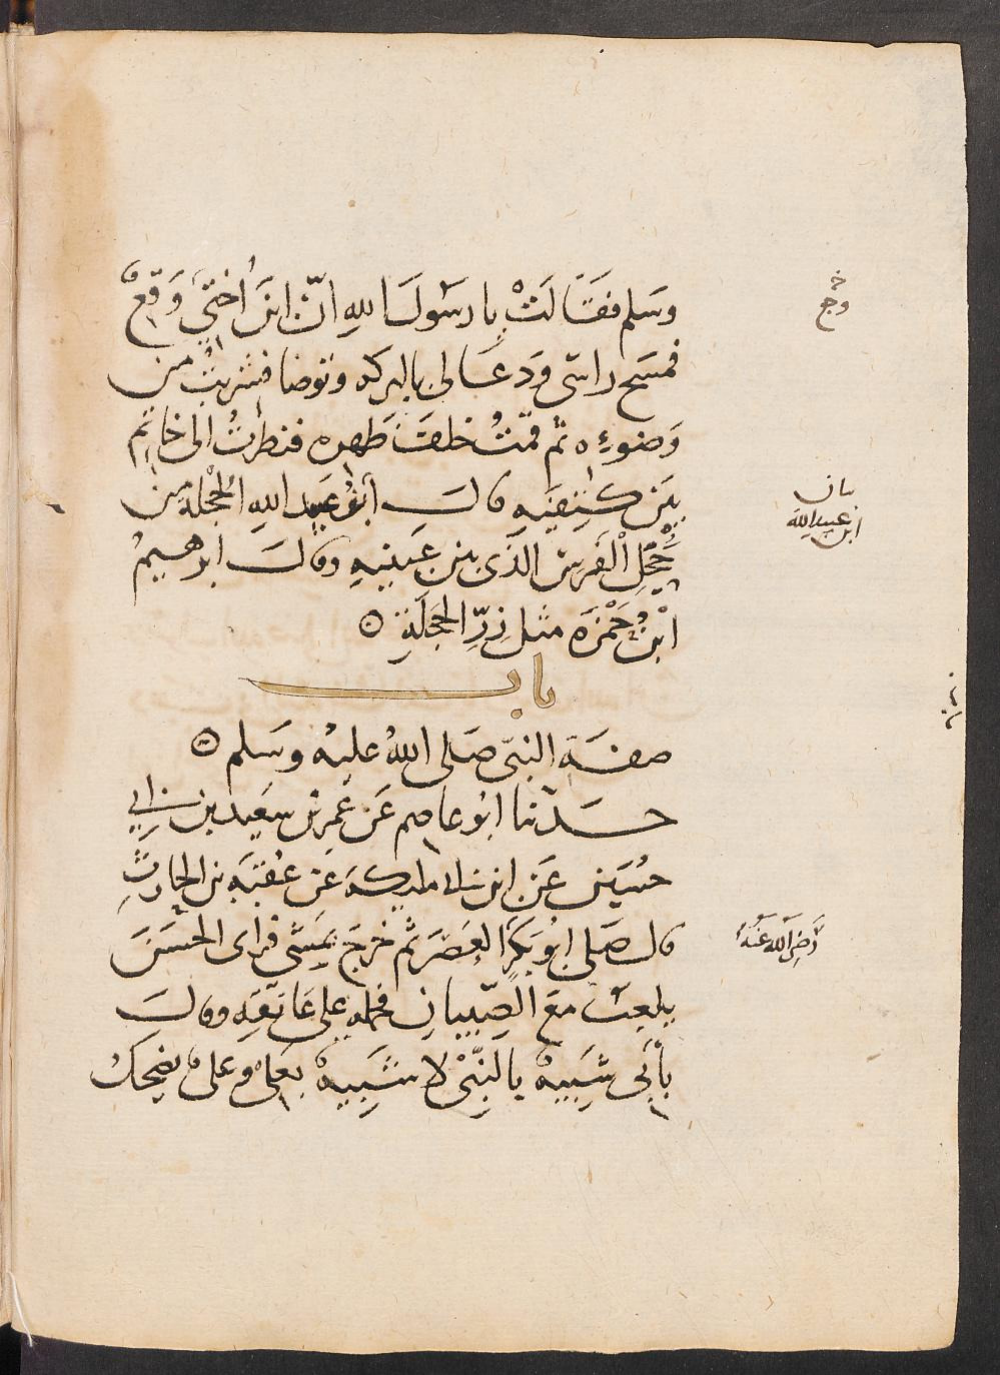 وسلم فقالت يا رسول الله ان ابن اختي وقع
فمسح راسي ودعا لي بالبركه وتوضا فشربت من
وضوءه ثم قمت خلف ظهره فنظرت الى خاتم
بين كتفيه قال ابن عبيد الله الحجلة من
حجل الفرس الذي بين عينيه وقال ابرهيم
ابن حمزه مثل زر الحجلة
باب
صفة النبي صلى الله عليه وسلم
حدثنا ابو عاصم عن عمر بن سعيد بن ابي
حسين عن ابن ابي مليكة عن عقبة بن الحارث
قال صلى ابو بكر العصر ثم خرج يمشي فراى الحسن
يلعب مع الصبيان فحمله على عاتقه وقال
بأبي شبيه بالنبي لا شبيه بعلي وعلي يضحك
وجع
ابن عبيد الله
رضي الله عنه